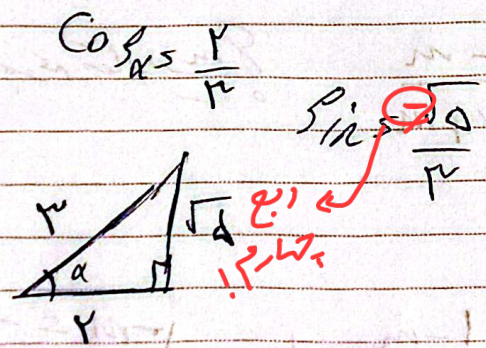 Cos α = ۲/۳
sin = -√۵/۳
ربع
چهارم!
۳
√۵
α
۲